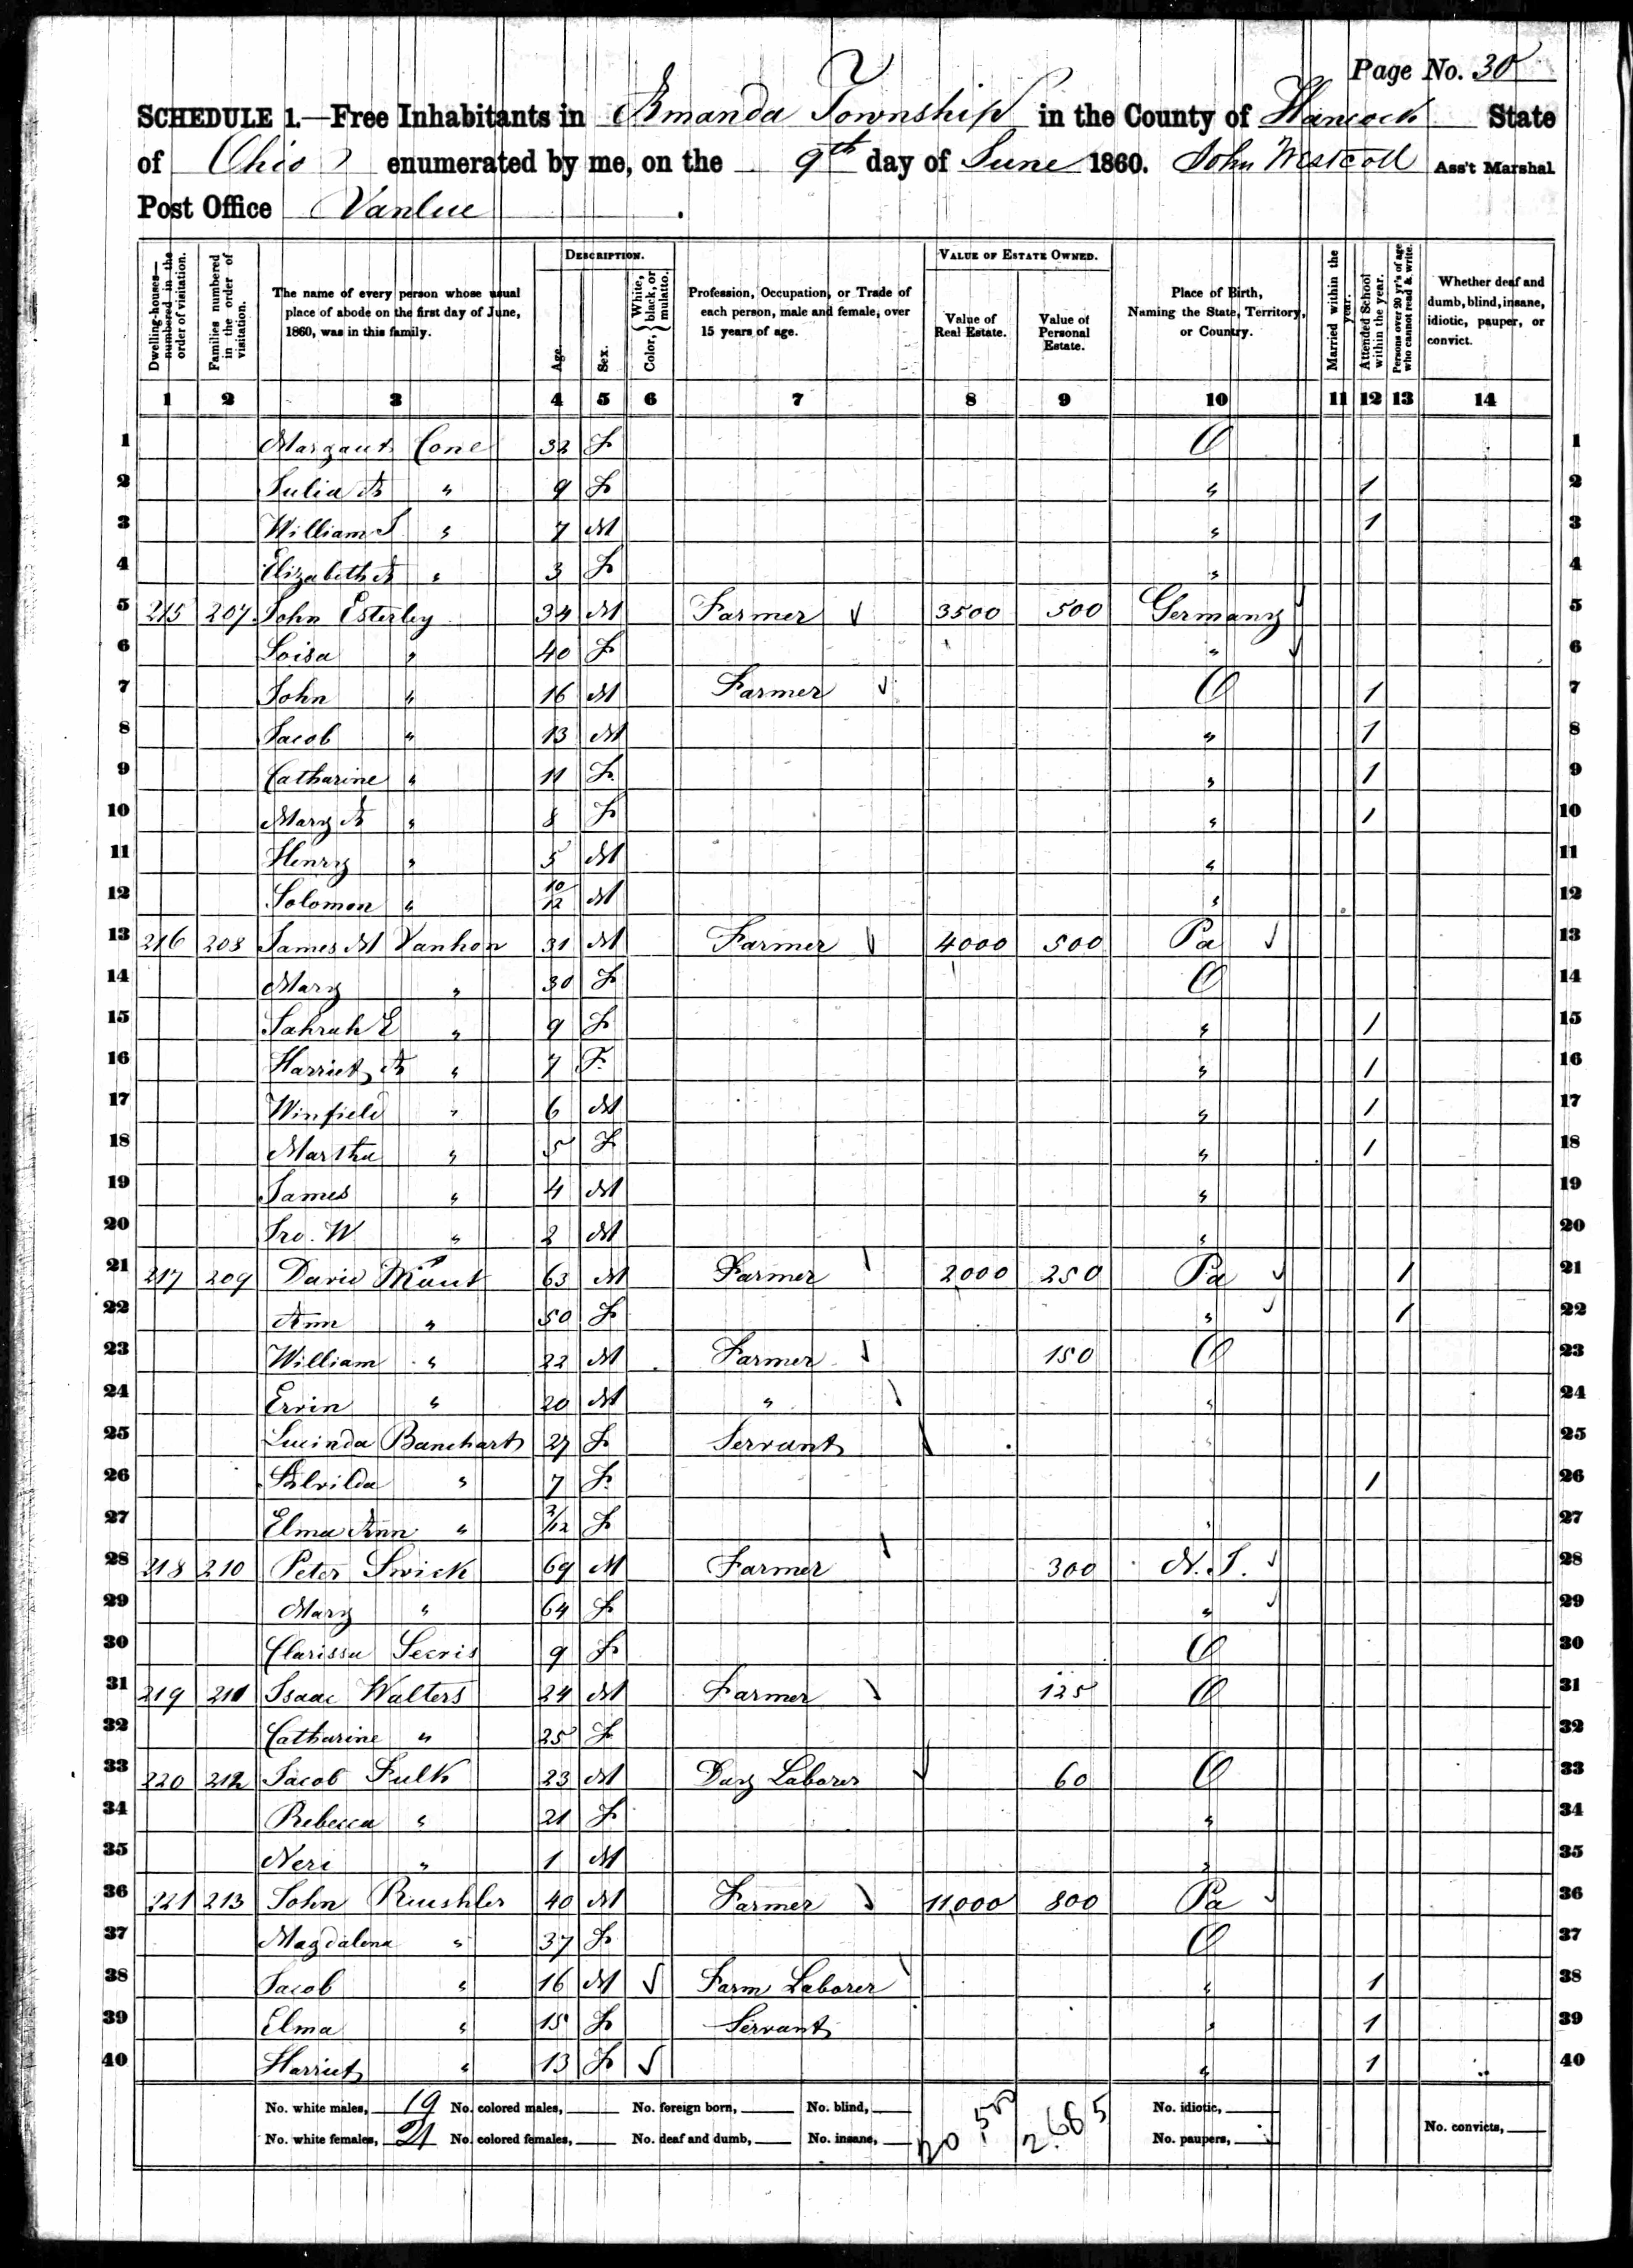 Page No. 30
SCHEDULE 1.—Free Inhabitants in Amanda Township in the County of Hancock State
of Ohio enumerated by me, on the 9th day of June 1860. John Westcott Ass't Marshal
Post Office Vanlue .
DESCRIPTION. VALUE OF ESTATE OWNED.
Dwelling-houses—numbered in the order of visitation. Families numbered in the order of visitation. The name of every person whose usual place of abode on the first day of June, 1860, was in this family. Age. Sex. Color, { White, black, or mulatto. Profession, Occupation, or Trade of each person, male and female, over 15 years of age. Value of Real Estate. Value of Personal Estate. Place of Birth, Naming the State, Territory, or Country. Married within the year. Attended School within the year. Persons over 20 yr's of age who cannot read & write. Whether deaf and dumb, blind, insane, idiotic, pauper, or convict.
1 2 3 4 5 6 7 8 9 10 11 12 13 14
1 Margaret Cone 32 F O 1
2 Julia A " 9 F " 1 2
3 William J " 7 M " 1 3
4 Elizabeth A " 3 F " 4
5 215 207 John Esterley 34 M Farmer 3500 500 Germany 5
6 Loisa " 40 F " 6
7 John " 16 M Farmer O 1 7
8 Jacob " 13 M " 1 8
9 Catharine " 11 F " 1 9
10 Mary A " 8 F " 1 10
11 Henry " 5 M " 11
12 Solomon " 10/12 M " 12
13 216 208 James M Vanhon 31 M Farmer 4000 500 Pa 13
14 Mary " 30 F O 14
15 Sahrah E " 9 F " 1 15
16 Harriet A " 7 F " 1 16
17 Winfield " 6 M " 1 17
18 Martha " 5 F " 1 18
19 James " 4 M " 19
20 W " 2 M " 20
21 217 209 David 63 M Farmer 2000 250 Pa 1 21
22 Ann " 50 F " 1 22
23 William " 22 M Farmer 150 O 23
24 Ervin " 20 M " " 24
25 Lucinda Banehart 27 F Servant " 25
26 " 7 F 1 26
27 Elma Ann " F " 27
28 218 210 Peter Swick 69 M Farmer 300 N. J. 28
29 Mary " 64 F " 29
30 Clarissa 9 F O 30
31 219 211 Isaac Walters 24 M Farmer 125 O 31
32 Catharine " 25 F 32
33 220 212 Jacob Fulk 23 M Day Laborer 60 O 33
34 Rebecca " 21 F " 34
35 Neri " 1 M " 35
36 221 213 John 40 M Farmer 11,000 800 Pa 36
37 Magdalena " 37 F O 37
38 Jacob " 16 M Farm Laborer " 1 38
39 Elma " 15 F Servant " 1 39
40 Harriet " 13 F " 1 40
No. white males, 19 No. colored males, No. foreign born, No. blind, 20,500 2,685 No. idiotic,
No. white females, 21 No. colored females, No. deaf and dumb, No. insane, No. paupers, No. convicts,